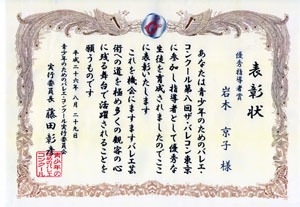 表彰状
優秀指導者賞
岩木 京子 様
あなたは青少年のためのバレエ・
コンクール第八回ザ・バレコン東京
に参加し指導者として優秀な
生徒を育成されましたのでここ
に表彰いたします
これを機会にますますバレエ芸
術への道を極め多くの観客の心
に残る舞台で活躍されることを
願うものです
平成二十六年八月二十九日
青少年のためのバレエ・コンクール実行委員会
実行委員長 藤田彰彦